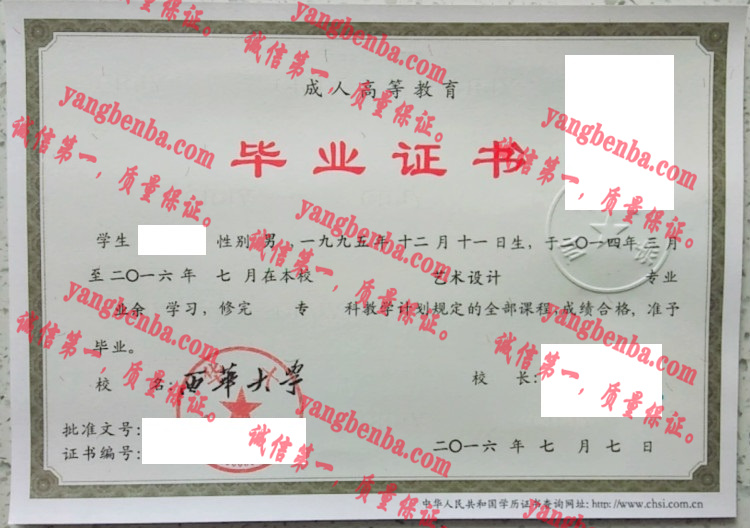 成人高等教育
毕业证书
学生 性别 男 ,一九九五年 十二月 十一日生,于二〇一四年 三月
至二〇一六年 七 月在本校 艺术设计 专业
业余 学习,修完 专 科教学计划规定的全部课程,成绩合格,准予
毕业。
校 名:西华大学 校 长:
批准文号:
证书编号: 二〇一六 年 七 月 七 日
中华人民共和国学历证书查询网址: http://www.chsi.com.cn
yangbenba.com
诚信第一,质量保证。
yangbenba.com
诚信第一,质量保证。
yangbenba.com
诚信第一,质量保证。
yangbenba.com
诚信第一,质量保证。
yangbenba.com
诚信第一,质量保证。
yangbenba.com
诚信第一,质量保证。
yangbenba.com
诚信第一,质量保证。
yangbenba.com
诚信第一,质量保证。